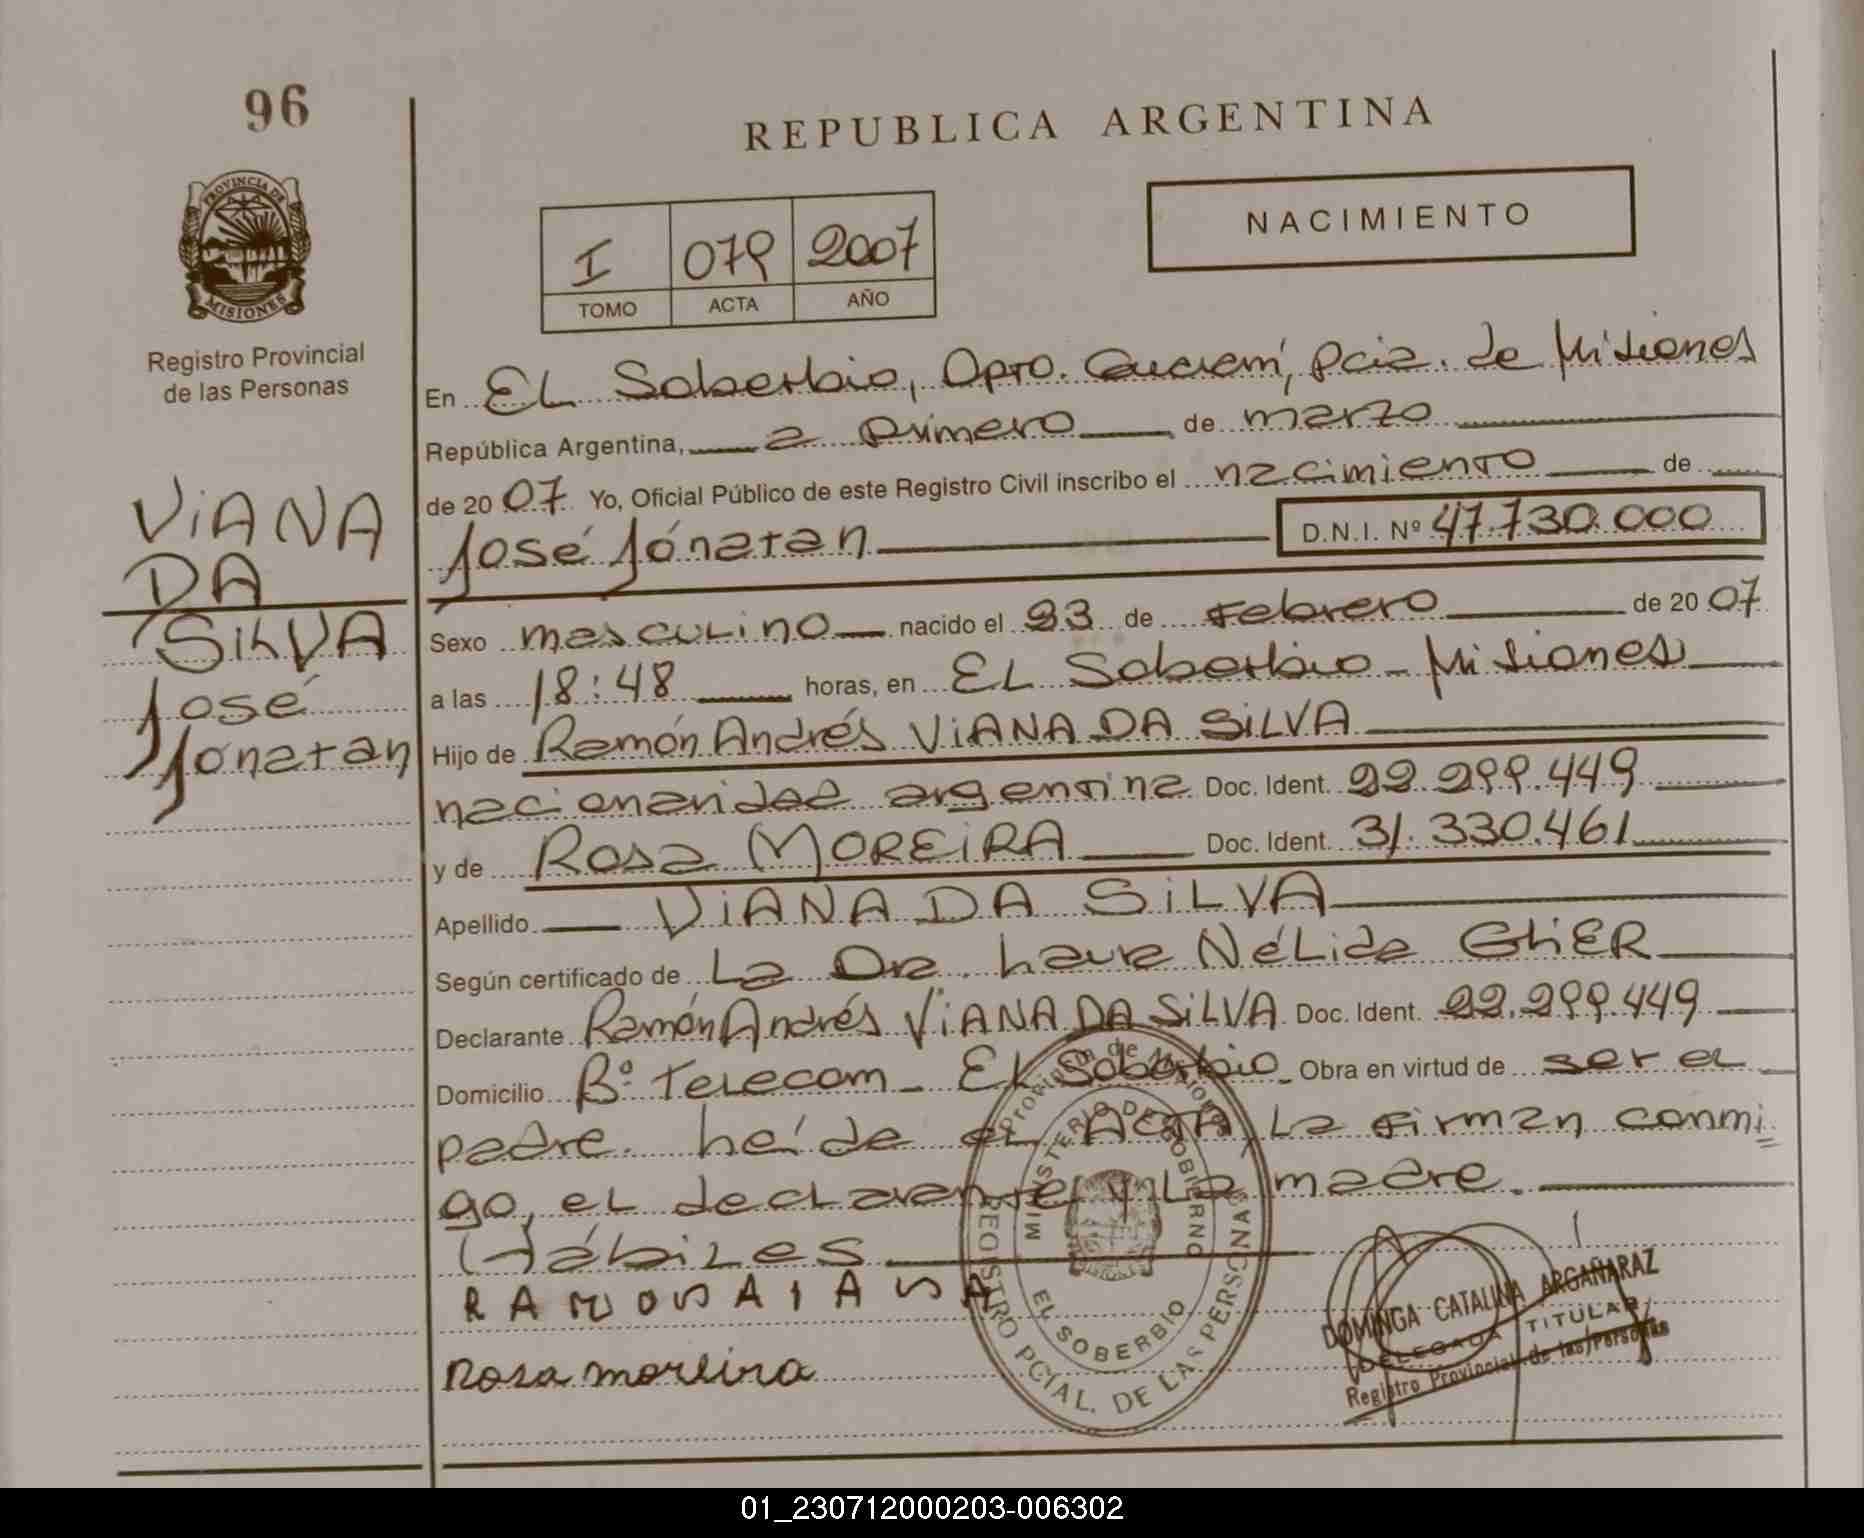 96
REPUBLICA ARGENTINA
PROVINCIA DE
MISIONES
Registro Provincial
de las Personas
I 079 2007
TOMO ACTA AÑO
NACIMIENTO
En EL Soberbio, Dpto. Guaraní, Pcia. de Misiones
República Argentina, a primero de marzo
de 2007 Yo, Oficial Público de este Registro Civil inscribo el nacimiento de
José Jónatan D.N.I. Nº 47.730.000
VIANA
DA
SILVA
José
Jónatan
Sexo masculino nacido el 23 de Febrero de 2007
a las 18:48 horas, en EL Soberbio - Misiones
Hijo de Ramón Andrés VIANA DA SILVA
nacionalidad argentina Doc. Ident. 22.299.449
y de Rosa MOREIRA Doc. Ident. 31.330.461
Apellido VIANA DA SILVA
Según certificado de La Dra. Laura NéLida
Declarante Ramón Andrés VIANA DA SILVA Doc. Ident. 22.299.449
Domicilio Bº Telecom - EL Soberbio - Obra en virtud de ser el
padre. Leída el ACTA, La firman conmi
go, el declarante y La madre.
Hábiles
Rosa moreira
Provincia de Misiones
MINISTERIO DE GOBIERNO
EL SOBERBIO
REGISTRO PCIAL. DE LAS PERSONAS
DOMINGA CATALINA ARGAÑARAZ
DELEGADA TITULAR
Registro Provincial de las Personas
01_230712000203-006302